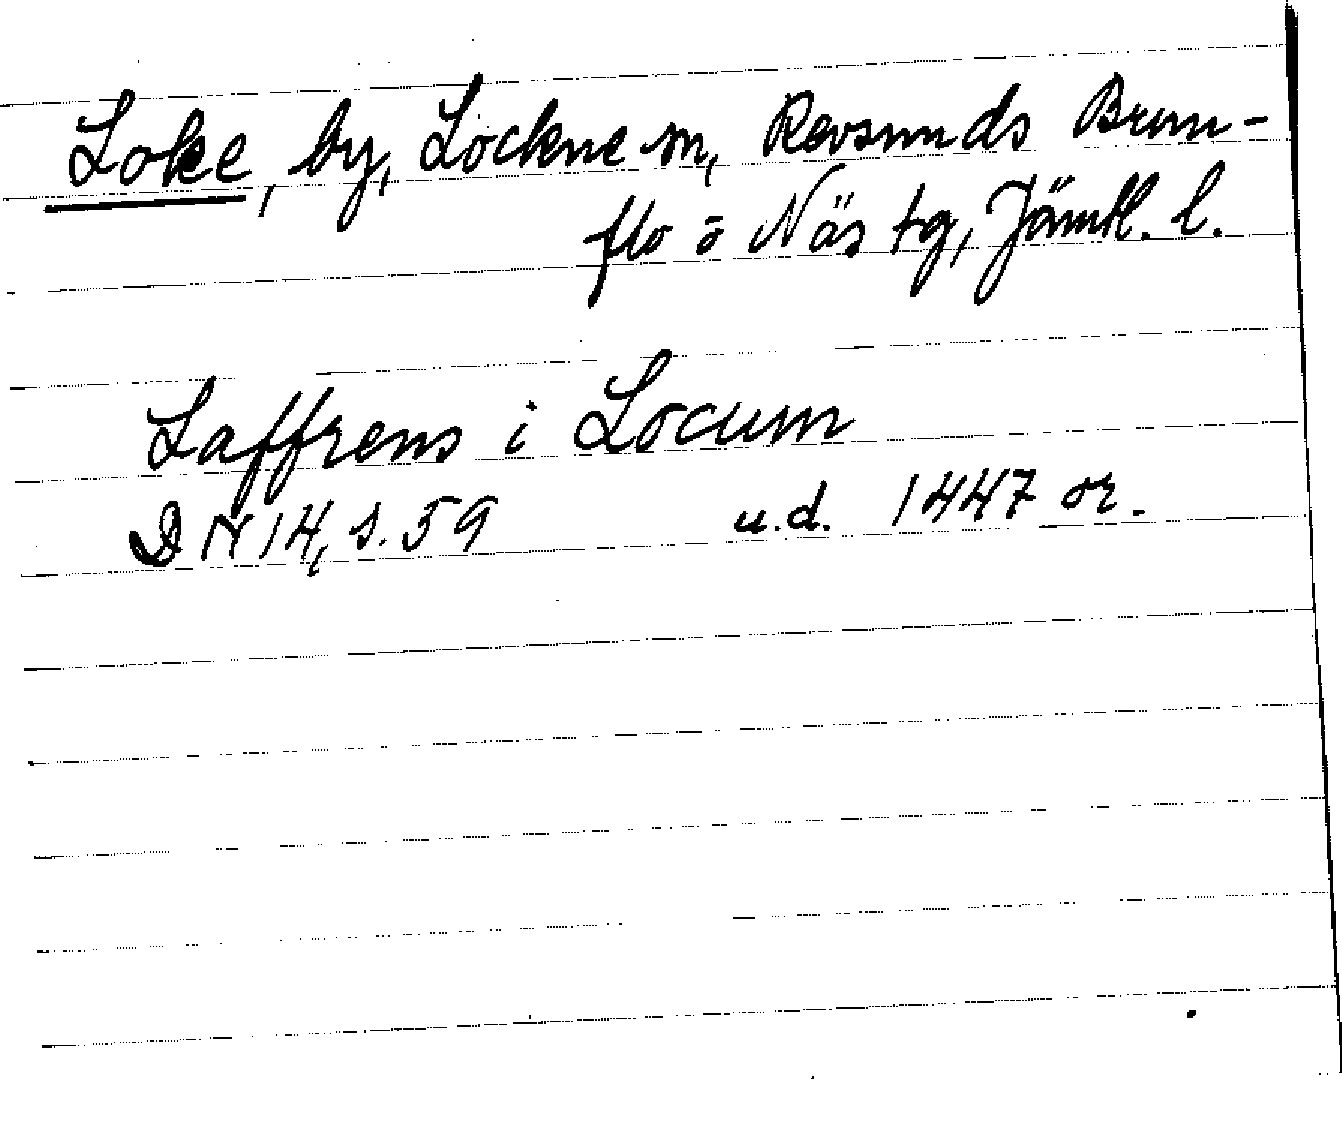 Loke, by, Lockne sn, Revsunds Brun-
flo ö Näs tg, Jämtl. l.
Laffrens i Locum
DN 14, s. 59 u.d. 1447 or.